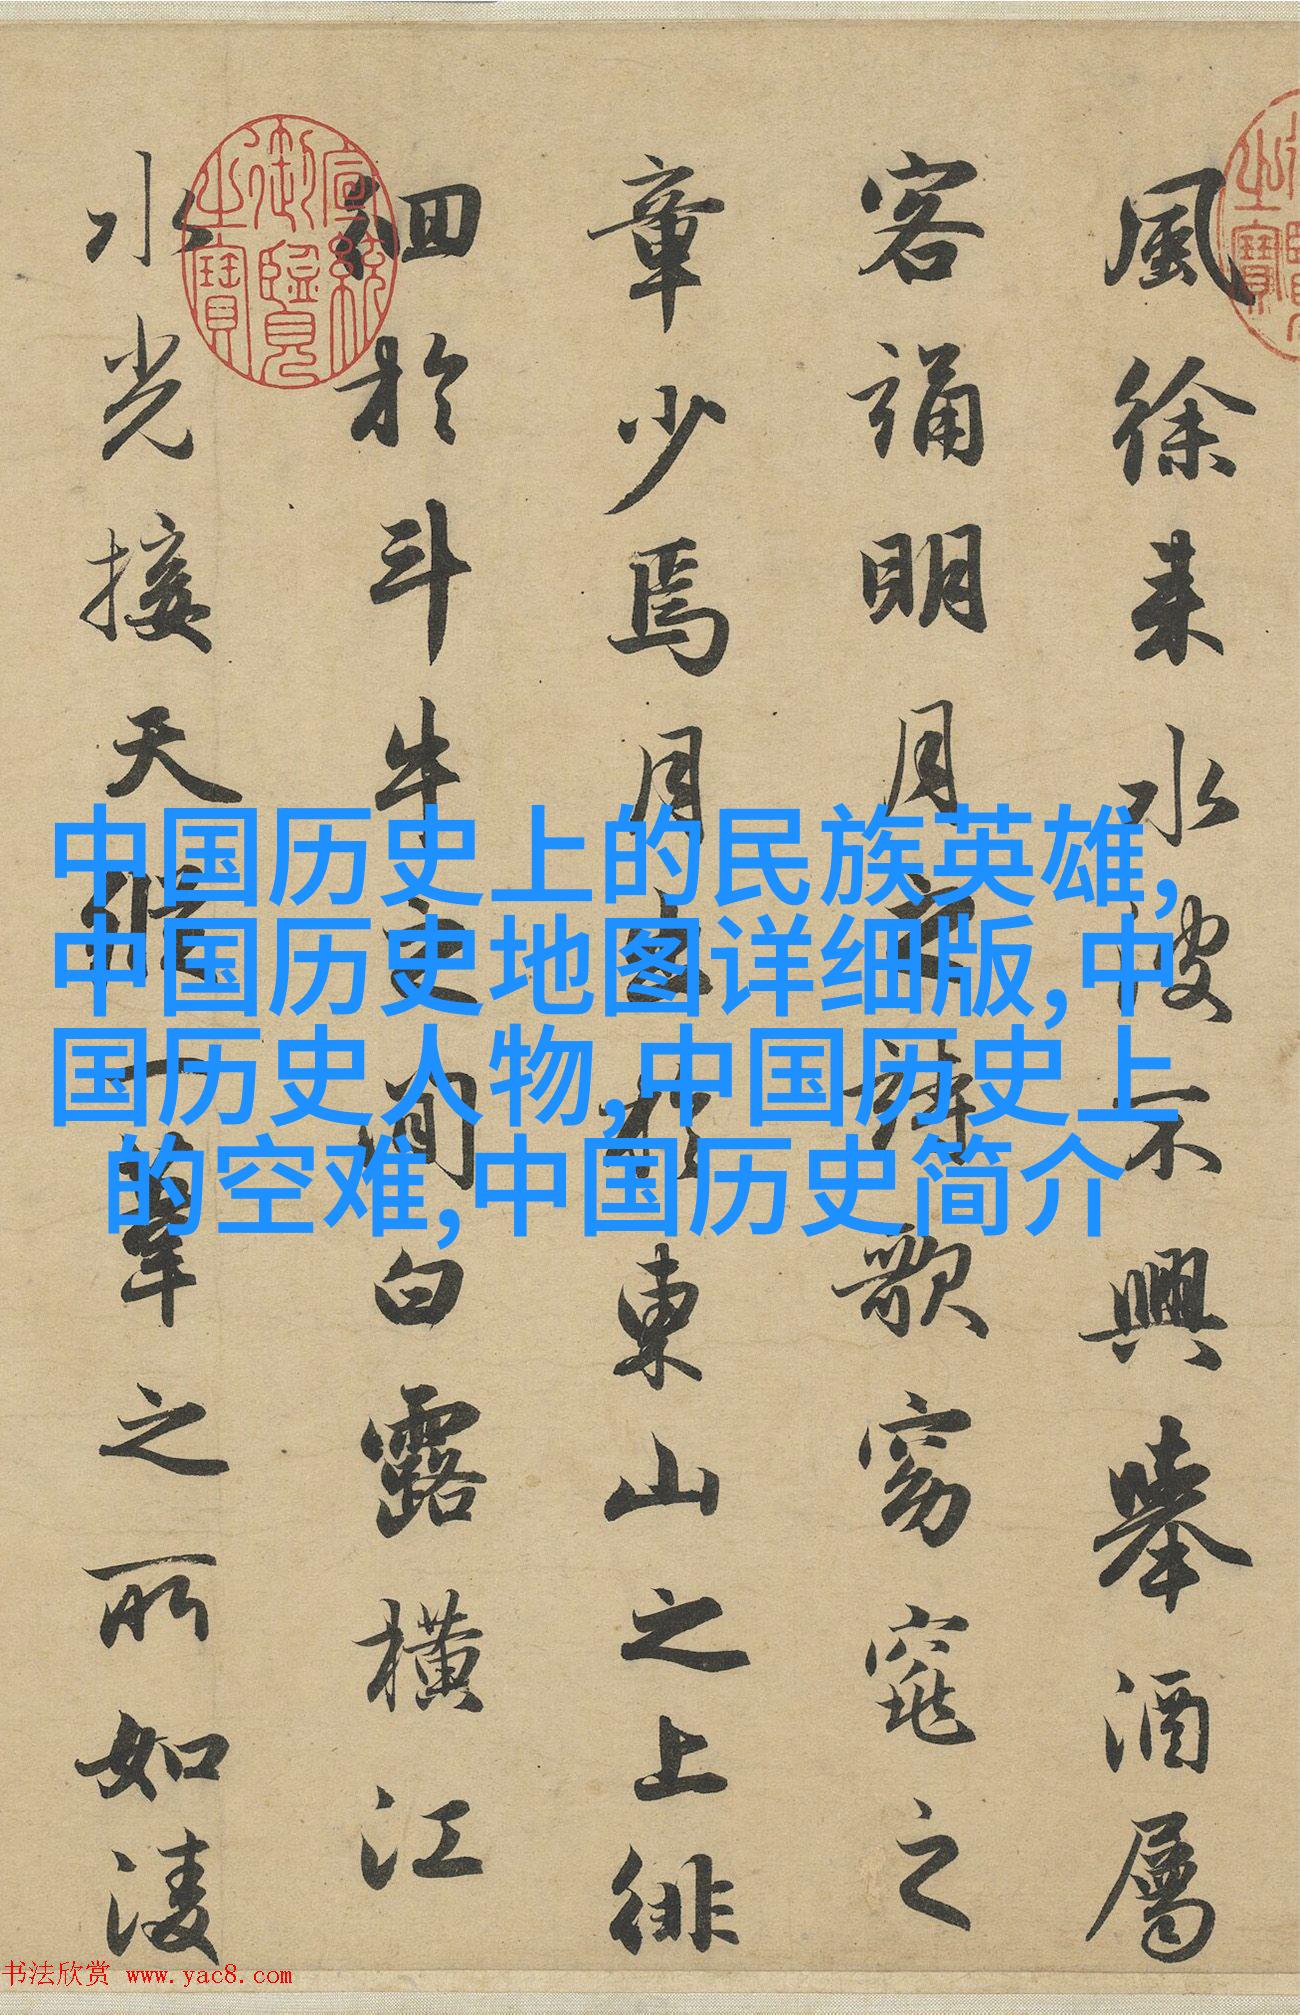 風徐来水波不興舉酒屬
客誦明月之詩歌窈窕之
章少焉月出於東山之上徘
徊於斗牛之間白露橫江
水光接天縱一葦之所如淩
宣統御覽之寶
中国历史上的民族英雄,
中国历史地图详细版,中
国历史人物,中国历史上
的空难,中国历史简介
书法欣赏 www.yac8.com